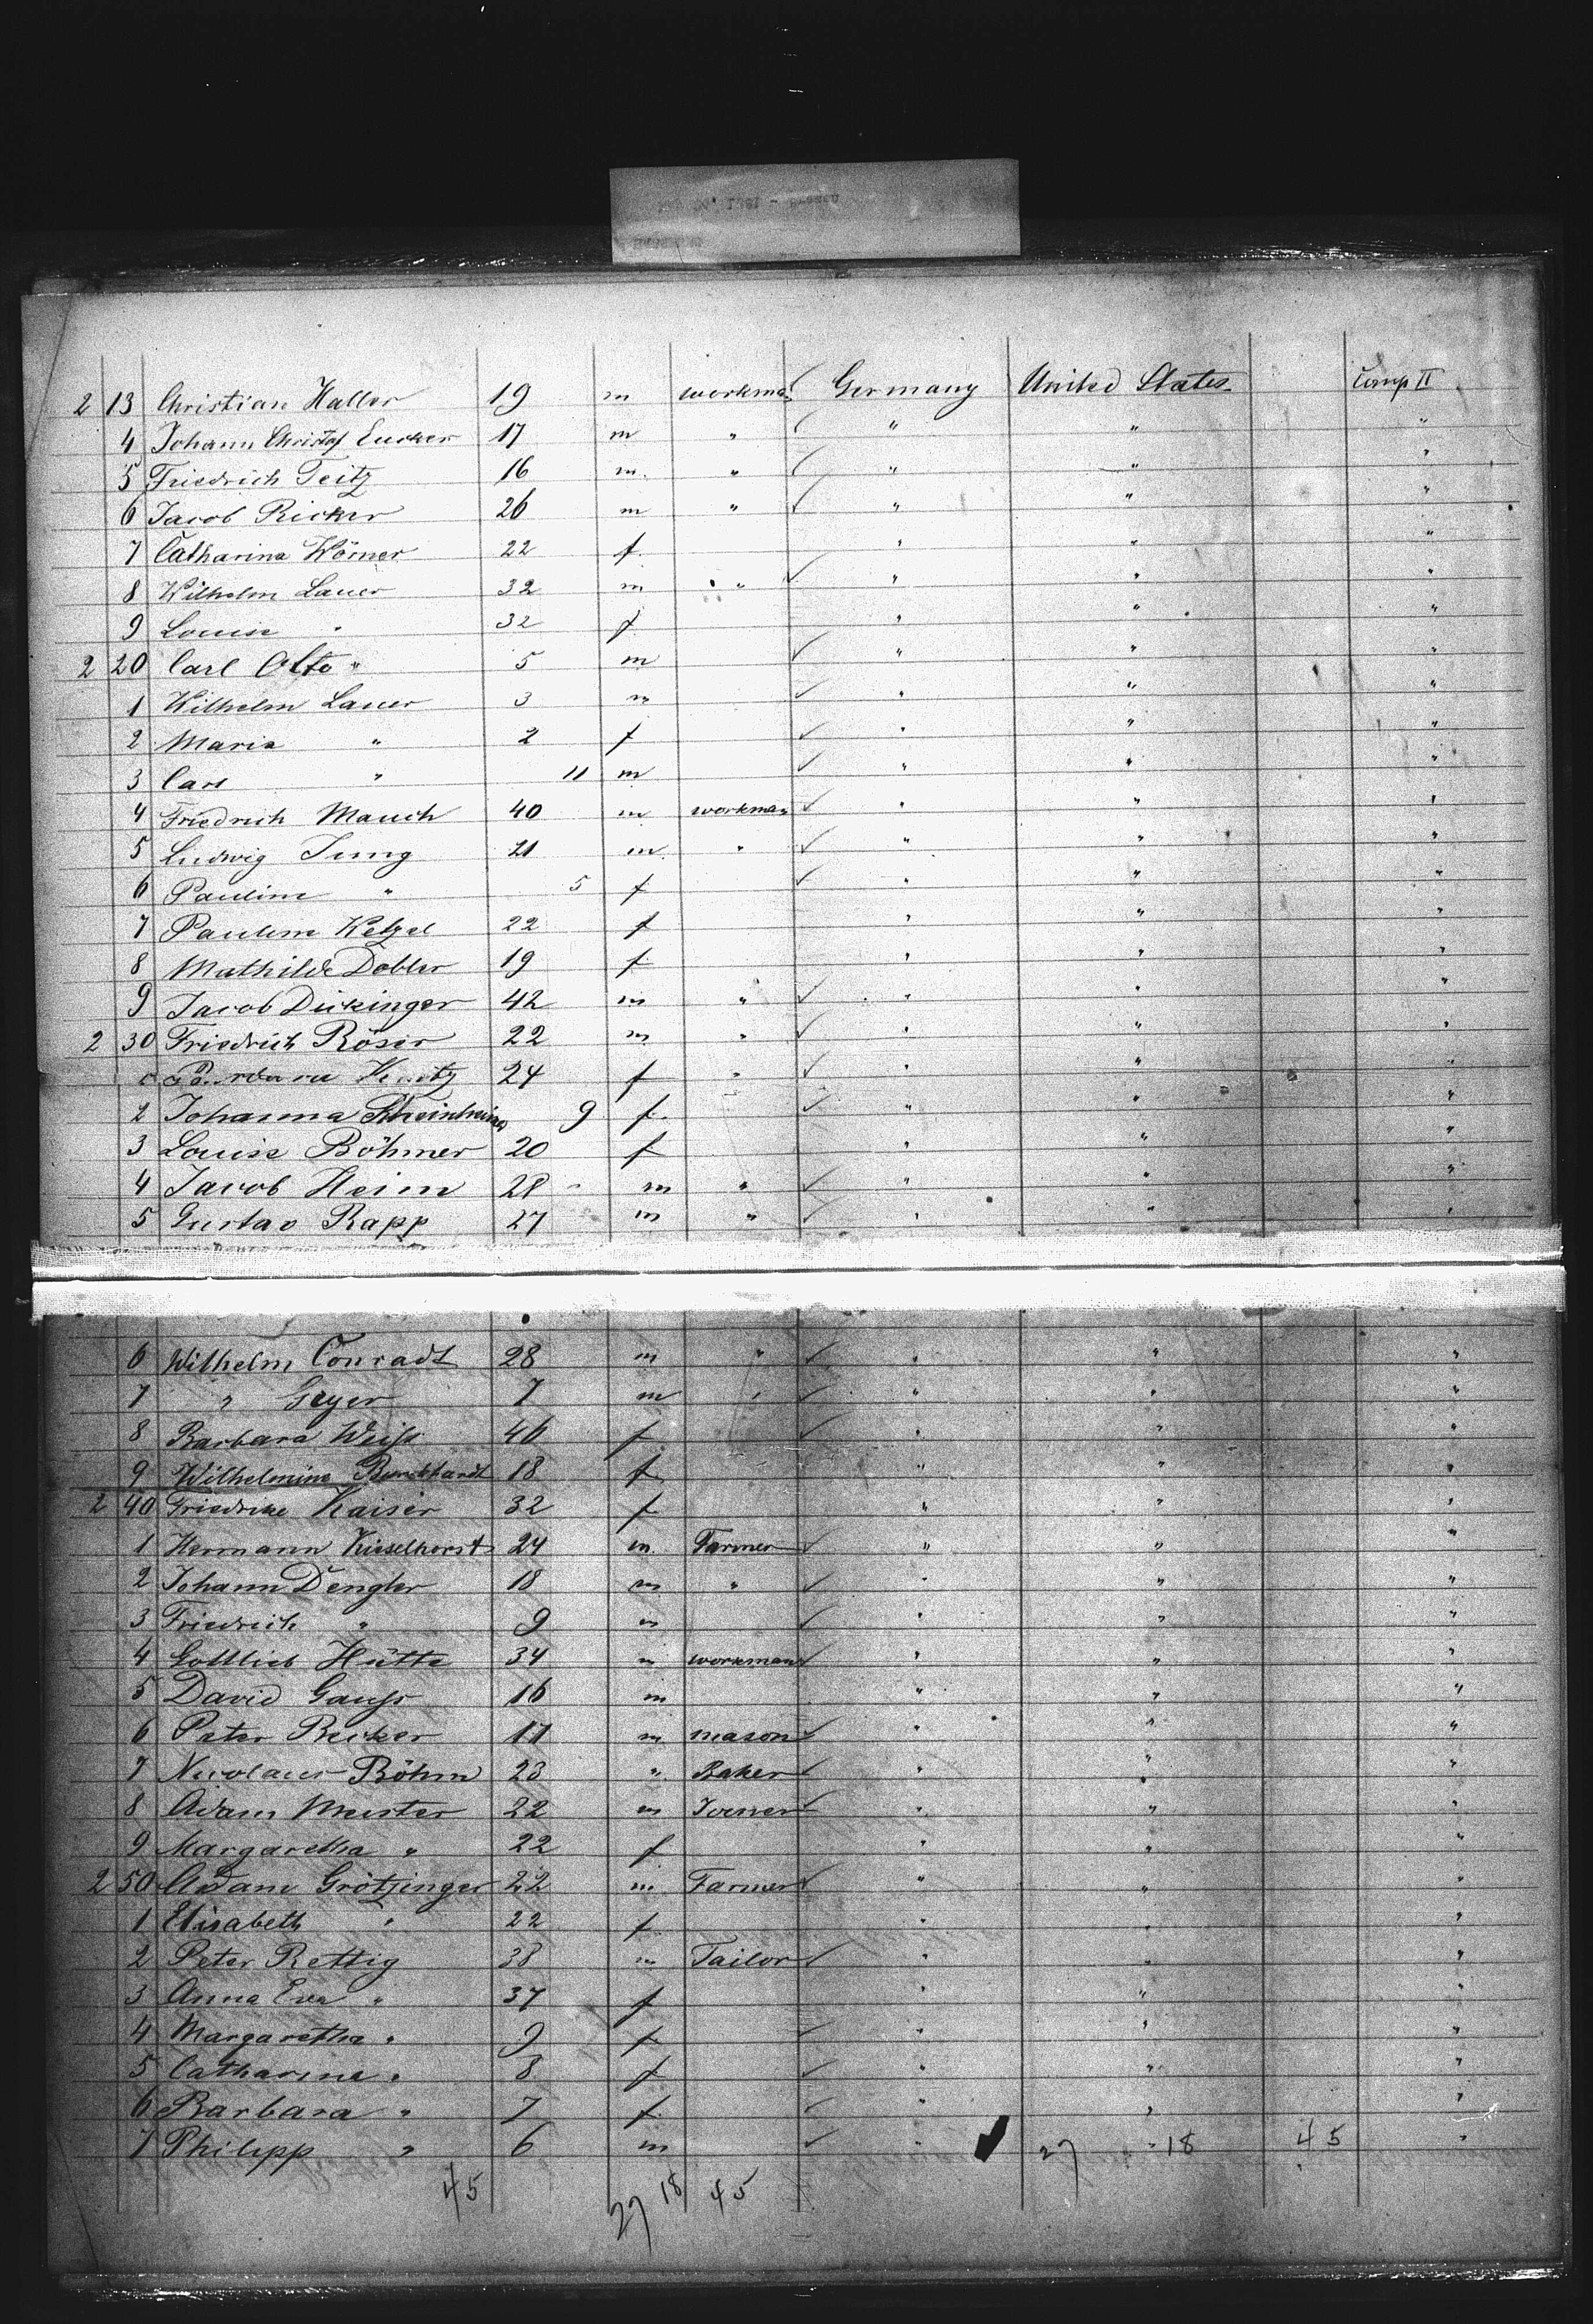 2 13 Christian Haller 19 m workman Germany United States Comp II
4 Johann Christof Eucker 17 m " " " "
5 Friedrich Teitz 16 m. " " " "
6 Jacob Ricker 26 m " " " "
7 Catharina Wörner 22 f. " " "
8 Wilhelm Lauer 32 m " " " "
9 Louise " 32 f " " "
2 20 Carl Otto " 5 m " " "
1 Wilhelm Lauer 3 m " " "
2 Maria " 2 f " " "
3 Carl " 11 m " " "
4 Friedrich Mauch 40 m workman " " "
5 Ludwig Jung 21 m. " " " "
6 Pauline " 5 f " " "
7 Pauline Ketzel 22 f " " "
8 Mathilde Dobler 19 f " " "
9 Jacob Dickinger 42 m " " " "
2 30 Friedrich Röser 22 m " " " "
24 f " " " "
2 Johanna 9 f. " " "
3 Louise Böhmer 20 f " " "
4 Jacob Heim 28 m " " " "
5 Gustav Rapp 27 m " " " "
6 Wilhelm Conradt 28 m " " " "
7 " Geyer 7 m " " " "
8 Barbara Weiss 46 f " " "
9 Wilhelmine Burckhardt 18 f " " "
2 40 Friedricke Kaiser 32 f " " "
1 Hermann Kieselhorst 24 m. Farmer " " "
2 Johann Dengler 18 m " " " "
3 Friedrich " 9 m " " "
4 Gottlieb Hütte 34 m workman " " "
5 David Gauss 16 m " " "
6 Peter Becker 17 m mason " " "
7 Nicolaus Böhm 23 " Baker " " "
8 Adam Meister 22 m Joiner " " "
9 Margaretha " 22 f " " "
2 50 Adam Grötzinger 22 m Farmer " " "
1 Elisabeth " 22 f " " "
2 Peter Rettig 38 m Tailor " " "
3 Anna Eva " 37 f " " "
4 Margaretha " 9 f " " "
5 Catharina " 8 f " " "
6 Barbara " 7 f. " " "
7 Philipp " 6 m " 27 " 18 45 "
45 27 18 45